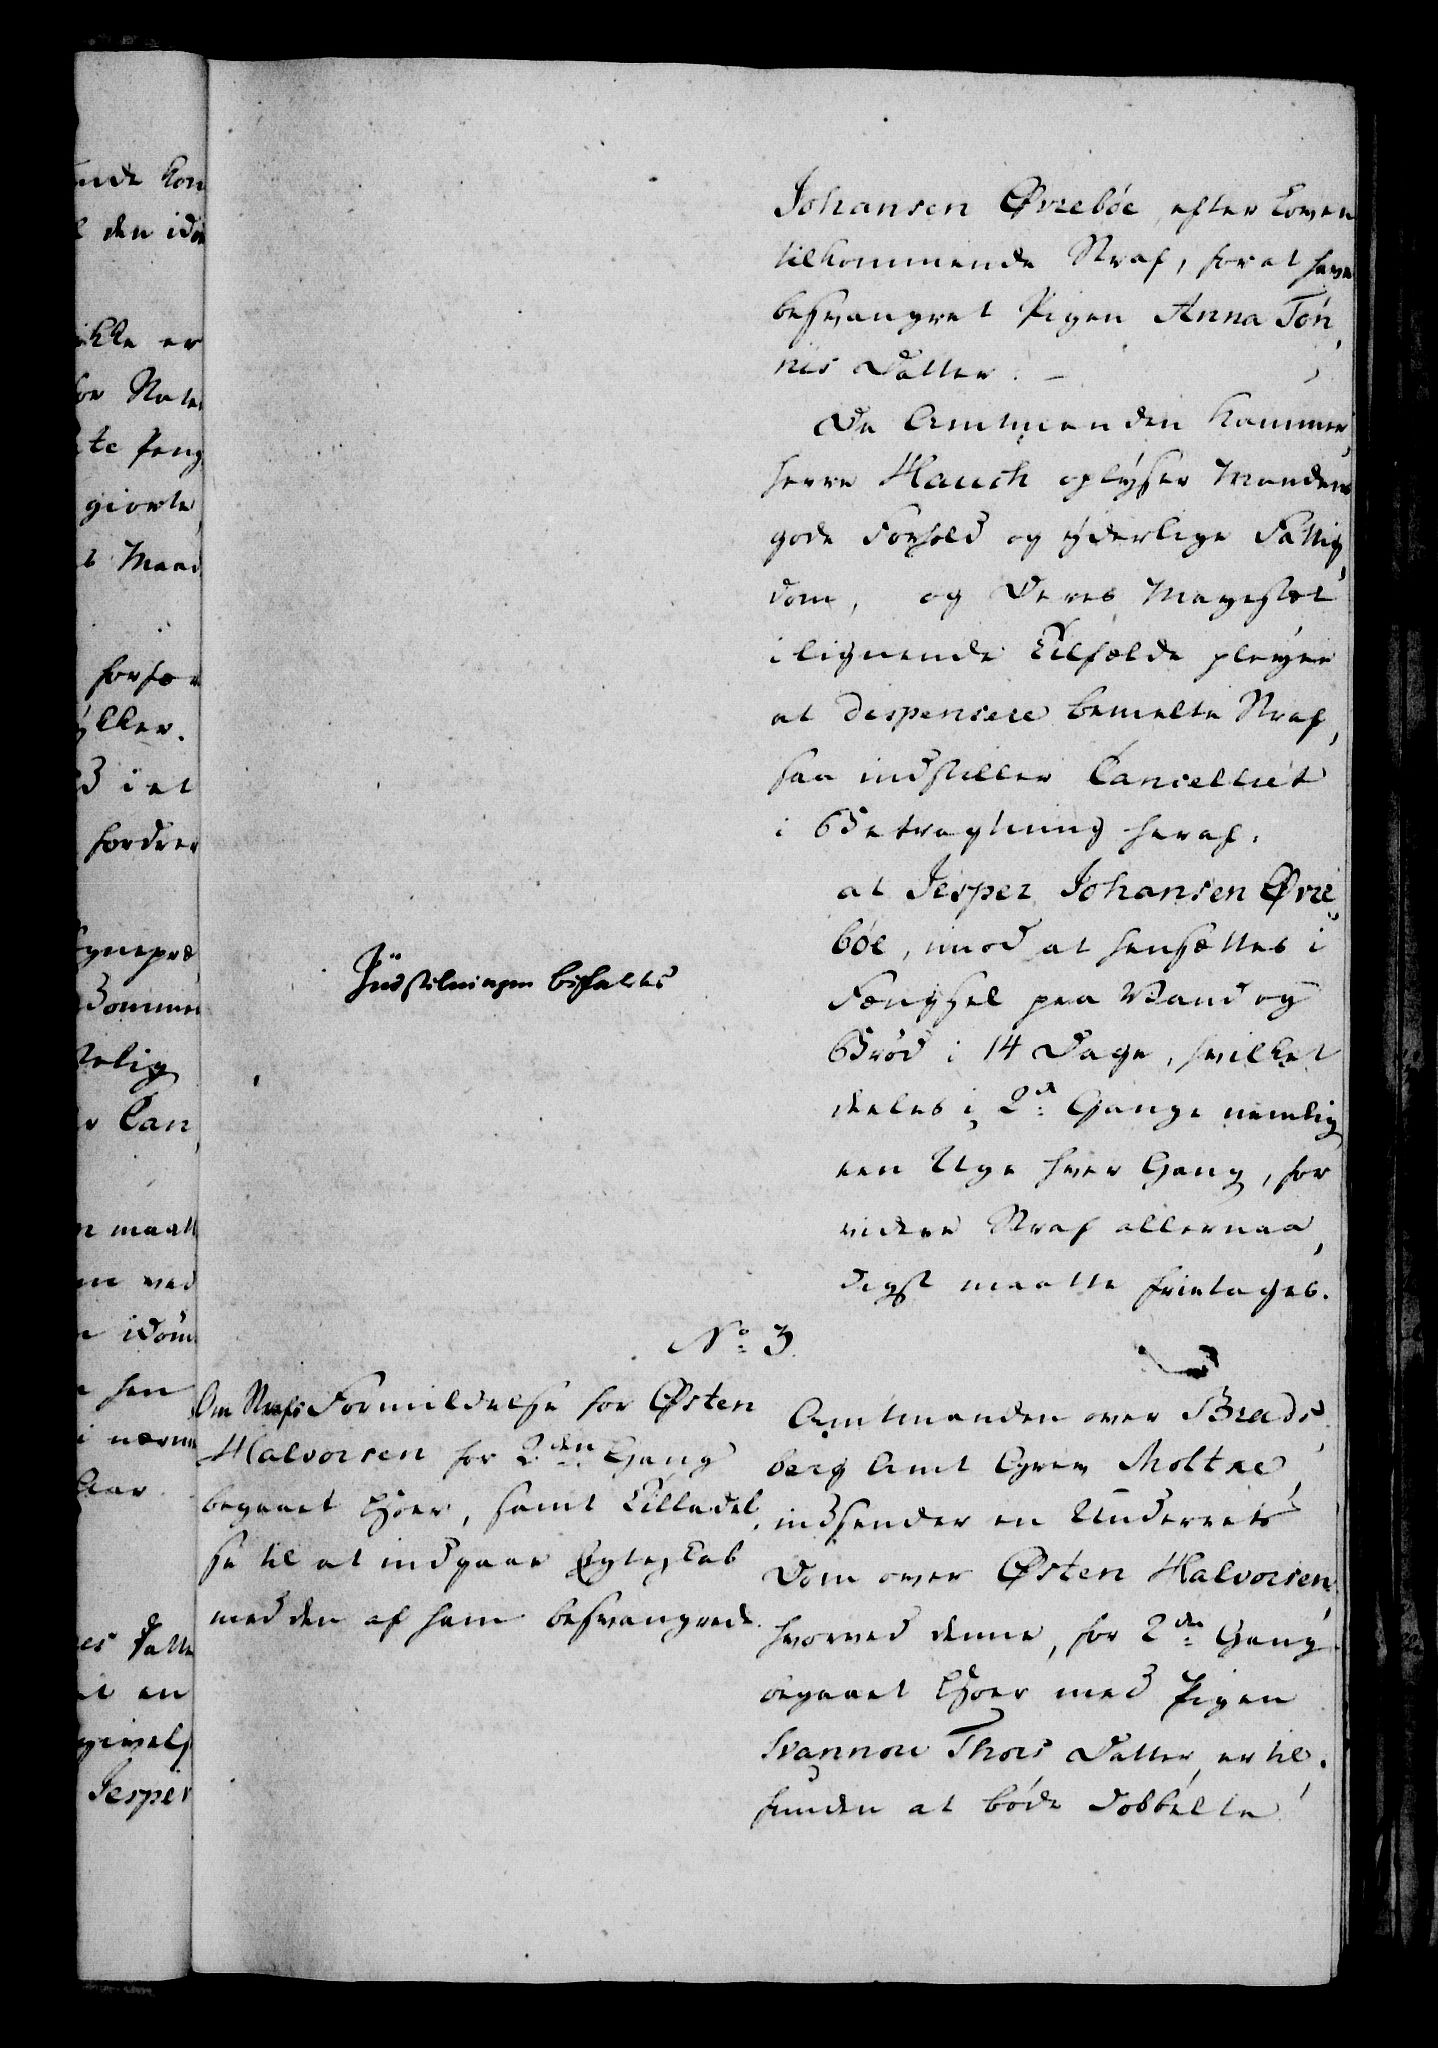 Johansen Øvrebøe efter Loven
tilkommende Straf, for at have
besvangret Pigen Anna Tøn,
nes Datter. –
Da Amtmanden Kammer,
herre Hauch oplyser Mandens
gode Forhold og yderlige Fattig,
dom, og Deres Mayestæt
i lignende Tilfælde pleyer
at dispensere bemelte Straf,
saa indstiller Cancelliet
i Betragtning heraf,
at Jesper Johansen Øvre,
bøe, imod at hensættes i
Fængsel paa Vand og
Brød i 14 Dage, hvilket
deeles i 2de Gange nemlig
een Uge hver Gang, for
videre Straf allernaa,
digst maatte fritages.
Indstilningen bifaldes
No 3.
Om Strafs Formildelse for Østen
Halvorsen for 2den Gang
begaaet Hoer, samt Tilladel,
se til at indgaae Egteskab
med den af ham besvangrede.
Amtmanden over Brads,
berg Amt Greve Moltke,
indsender en Underrets
Dom over Østen Halvorsen,
hvorved denne, for 2den Gang
begaaet Hoer med Pigen
Svannou Thors Datter, er til,
funden at bøde dobbelte